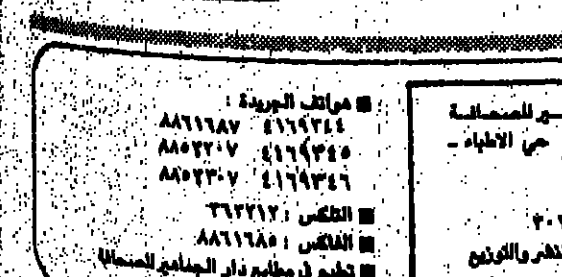 ■ هواتف الجريدة :
٤١٦٩٣٤٤ ٨٨٦١٦٨٧
٤١٦٩٣٤٥ ٨٨٥٢٢٠٧
٤١٦٩٣٤٦ ٨٨٥٢٣٠٧
■ التلكس : ٣٦٢٢١٢
■ الفاكس : ٨٨٦١٦٨٥
■ تطبع في مطابع دار الجماهير للصحافة
ـير للصحـافـة
حي الاطباء ـ
نشر والتوزيع